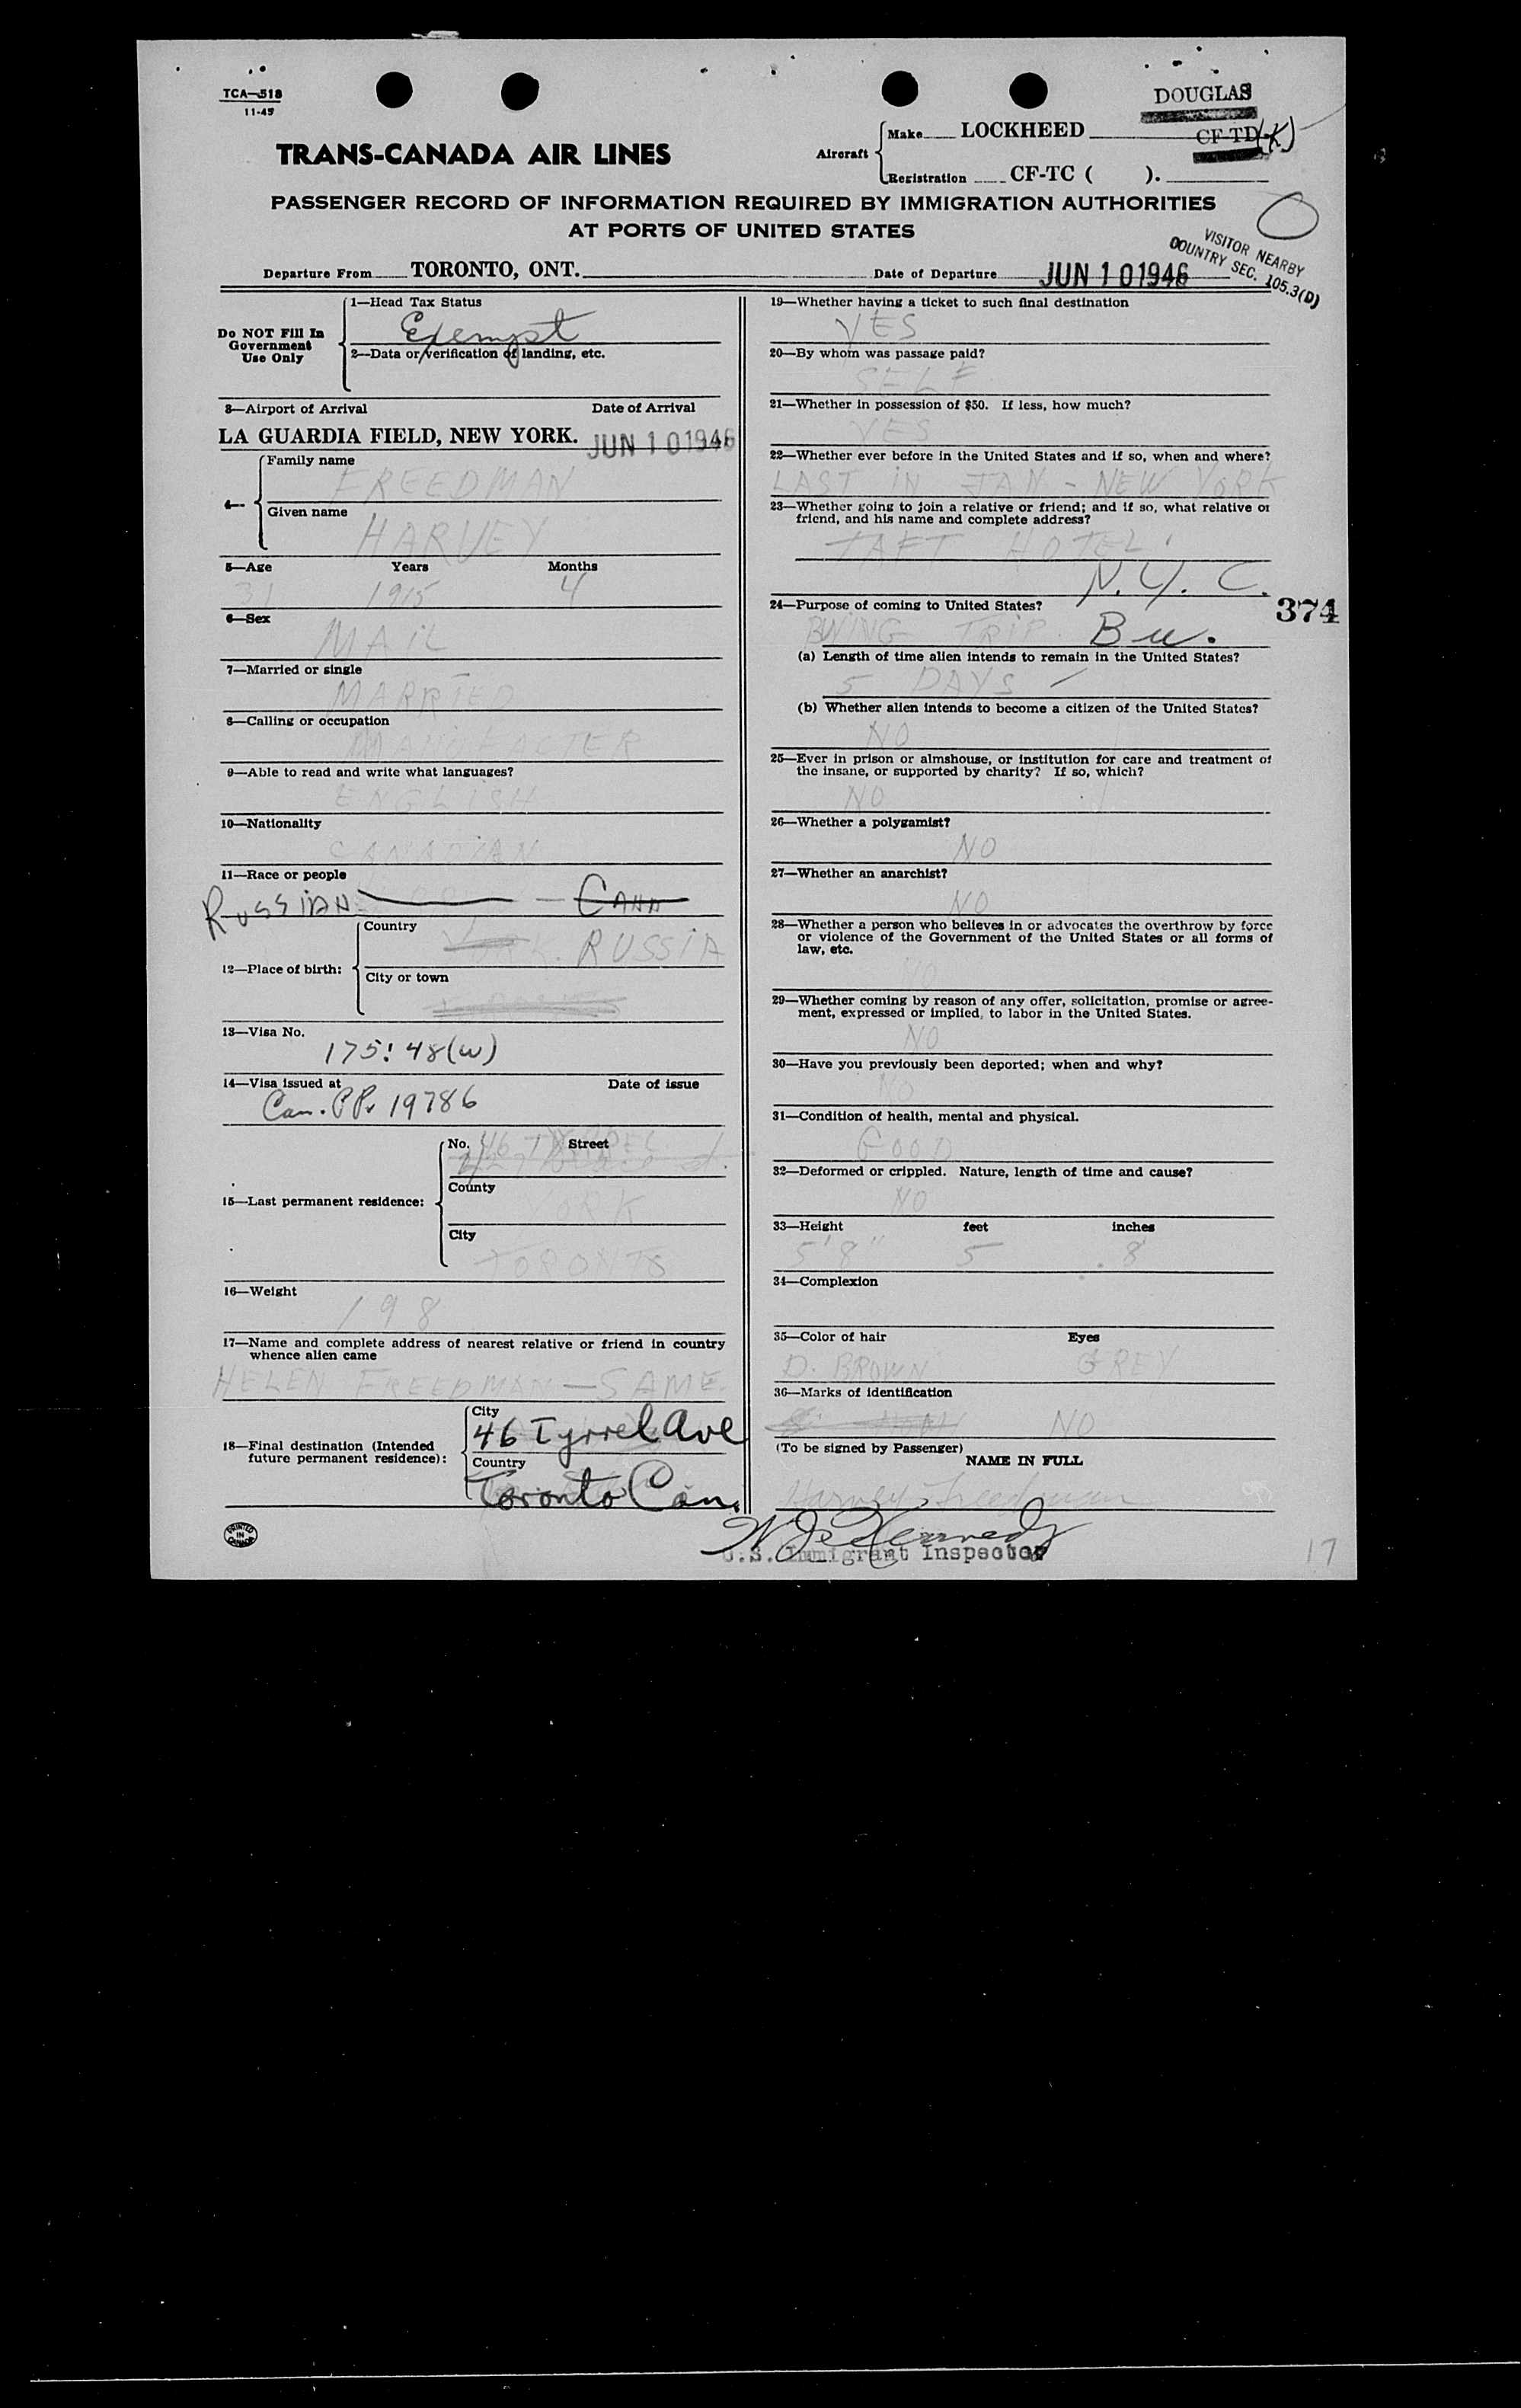 TCA—518
11-45
DOUGLAS
TRANS-CANADA AIR LINES
Aircraft
Make LOCKHEED
CF-TD (K)
Registration CF-TC ( ).
PASSENGER RECORD OF INFORMATION REQUIRED BY IMMIGRATION AUTHORITIES
AT PORTS OF UNITED STATES
VISITOR NEARBY
COUNTRY SEC. 105.3(D)
Departure From TORONTO, ONT. Date of Departure JUN 10 1946
Do NOT Fill In
Government
Use Only
1—Head Tax Status
Exempt
2—Data or verification of landing, etc.
3—Airport of Arrival Date of Arrival
LA GUARDIA FIELD, NEW YORK. JUN 10 1946
4—
Family name
FREEDMAN
Given name
HARVEY
5—Age Years Months
31 1915 4
6—Sex
MAIL
7—Married or single
MARRIED
8—Calling or occupation
MANUFACTER
9—Able to read and write what languages?
ENGLISH
10—Nationality
CANADIAN
11—Race or people
RUSSIAN — CANA
12—Place of birth:
Country
YORK. RUSSIA
City or town
13—Visa No.
175:48(w)
14—Visa issued at Date of issue
Can. PPr 19786
15—Last permanent residence:
No. Street
46
County
YORK
City
TORONTO
16—Weight
198
17—Name and complete address of nearest relative or friend in country
whence alien came
HELEN FREEDMAN — SAME
18—Final destination (Intended
future permanent residence):
City
46 Tyrrel Ave
Country
Toronto Can.
PRINTED
IN
CANADA
19—Whether having a ticket to such final destination
YES
20—By whom was passage paid?
SELF
21—Whether in possession of $50. If less, how much?
YES
22—Whether ever before in the United States and if so, when and where?
LAST IN JAN - NEW YORK
23—Whether going to join a relative or friend; and if so, what relative or
friend, and his name and complete address?
TAFT HOTEL.
N.Y.C.
374
24—Purpose of coming to United States?
BUYING TRIP. Bu.
(a) Length of time alien intends to remain in the United States?
5 DAYS
(b) Whether alien intends to become a citizen of the United States?
NO
25—Ever in prison or almshouse, or institution for care and treatment of
the insane, or supported by charity? If so, which?
NO
26—Whether a polygamist?
NO
27—Whether an anarchist?
NO
28—Whether a person who believes in or advocates the overthrow by force
or violence of the Government of the United States or all forms of
law, etc.
NO
29—Whether coming by reason of any offer, solicitation, promise or agree-
ment, expressed or implied, to labor in the United States.
NO
30—Have you previously been deported; when and why?
NO
31—Condition of health, mental and physical.
GOOD
32—Deformed or crippled. Nature, length of time and cause?
NO
33—Height feet inches
5'8" 5 8
34—Complexion
35—Color of hair Eyes
D. BROWN GREY
36—Marks of identification
NO
(To be signed by Passenger)
NAME IN FULL
Harvey Freedman
W J Kennedy
U.S. Immigrant Inspector
17